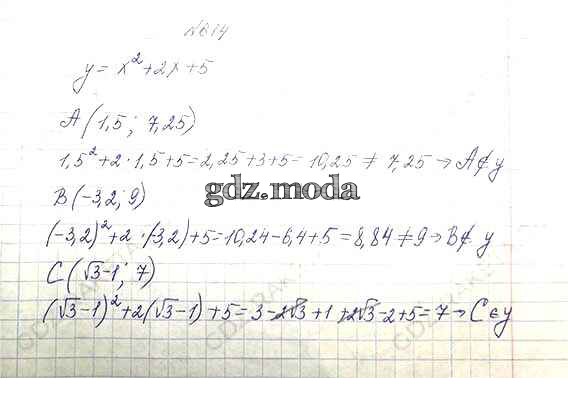 №814
y = x² + 2x + 5
A (1,5 ; 7,25)
1,5² + 2 · 1,5 + 5 = 2,25 + 3 + 5 = 10,25 ≠ 7,25 → A ∉ y
gdz.moda
B (-3,2 ; 9)
(-3,2)² + 2 · (-3,2) + 5 = 10,24 - 6,4 + 5 = 8,84 ≠ 9 → B ∉ y
C (√3-1 ; 7)
(√3-1)² + 2(√3-1) + 5 = 3 - 2√3 + 1 + 2√3 - 2 + 5 = 7 → C ∈ y